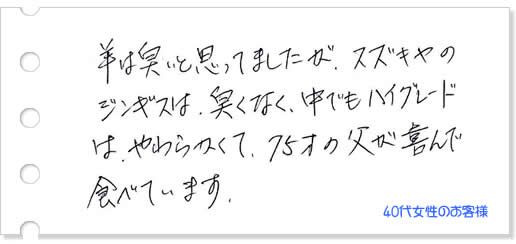 羊は臭いと思ってましたが、スズキヤの
ジンギスは、臭くなく、中でもハイグレード
は、やわらかくて、75才の父が喜んで
食べています。
40代女性のお客様